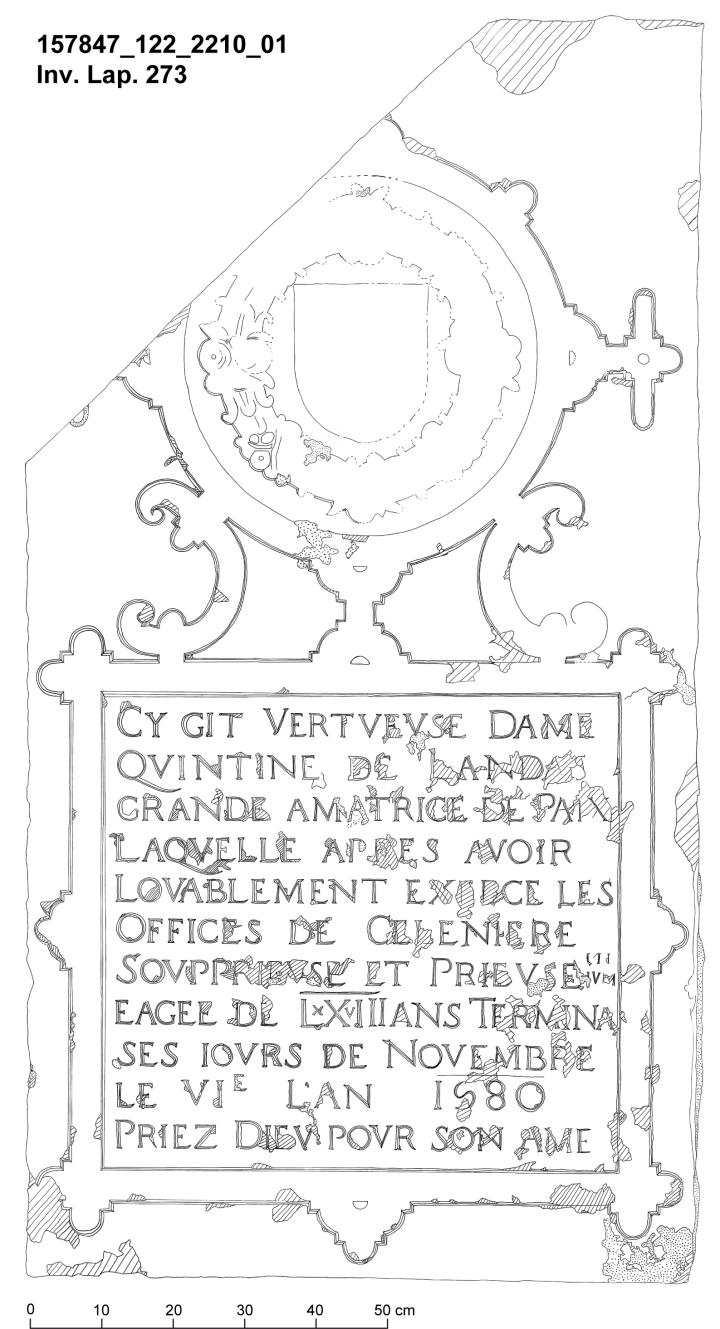 157847_122_2210_01
Inv. Lap. 273
CY GIT VERTVEVSE DAME
QVINTINE DE LANDAS
GRANDE AMATRICE DE PAIX
LAQVELLE APRES AVOIR
LOVABLEMENT EXERCE LES
OFFICES DE CELENIERE
SOVPPRIEVSE ET PRIEVSE
EAGEE DE LXIIIANS TERMINA
SES IOVRS DE NOVEMBRE
LE VIE L'AN 1580
PRIEZ DIEV POVR SON AME
0 10 20 30 40 50 cm